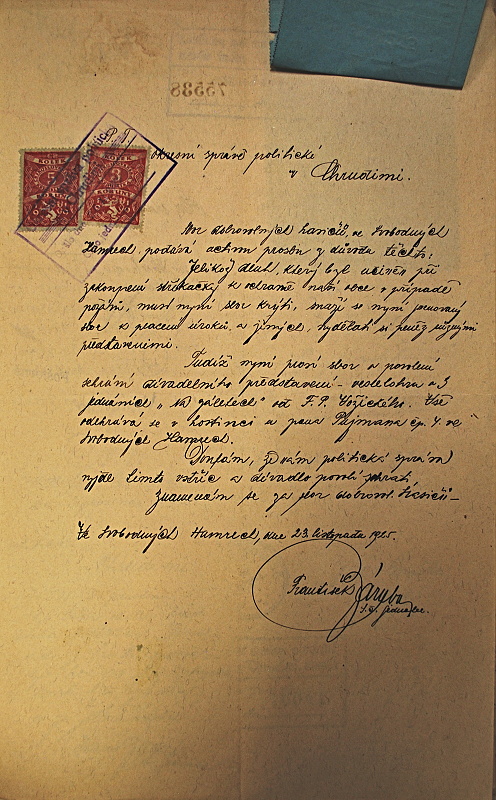 75588
okresní správě politické
v Chrudimi.
Sbor dobrovolných hasičů ve Svobodných
Hamrech podává activm prosbu z důvodu těchto:
Jelikož dluh, který byl učiněn při
zakoupení stříkačky k ochraně naší obce v případě
požáru, musí nyní sbor krýti, snaží se nyní jmenovaný
sbor k placení úroků a jiných, vydělati si peněz různými
představeními.
Tudíž nyní prosí sbor o povolení
sehrání divadelního představení - veselohra o 3
jednáních „Na záletech" od F. P. Vše
odehrává se v hostinci u pana Pujmana čp. 4. ve
Svobodných Hamrech.
Doufám, že nám politická správa
vyjde tímto vstříc a divadlo povolí sehrati,
znamenám se za sbor dobrovol. hasičů -
Ve Svobodných Hamrech, dne 23. listopadu 1925.
František Záruba
t. č. jednatel.
KOLEK
3
KORUNY
KOLEK
3
KORUNY